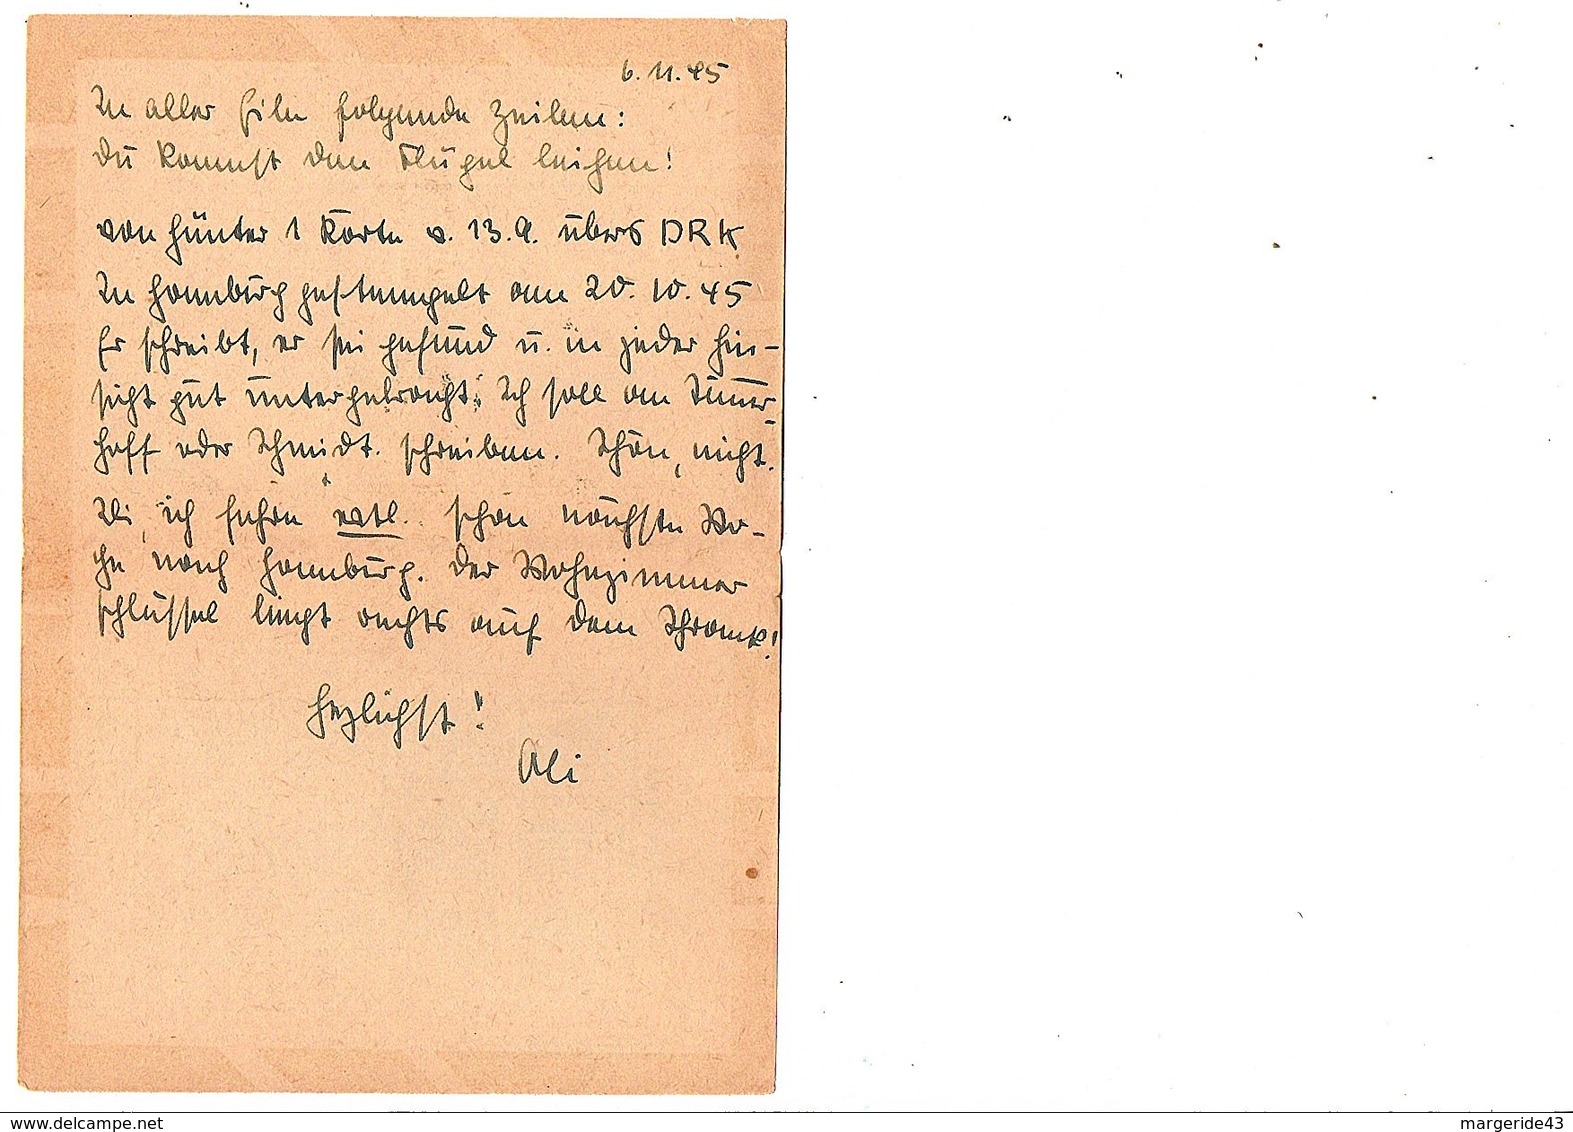 6.11.45
In aller Eile folgende Zeilen:
Du kannst den Flügel leihen!
Von Günter 1 Karte v. 13.9. übers DRK
In Hamburg gestempelt am 20.10.45
Er schreibt, er sei gesund u. in jeder Hin-
sicht gut untergebracht. Ich soll an
hoff oder Schmidt. schreiben. Schön, nicht.
ich fahre evtl. schon nächste Wo-
che nach Hamburg. Der Wohnzimmer
schlüssel liegt rechts auf dem Schrank!
Hezlichst!
Ali
www.delcampe.net
margeride43